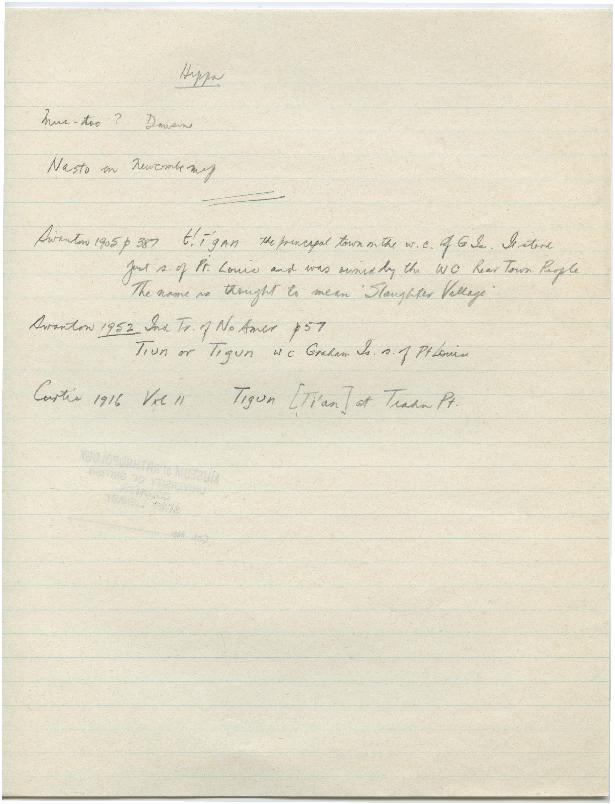 Hippa
Nasto on Newcombe map
Swanton 1905 p 387 t!ī'gAn the principal town on the w.c. of G Is. It stood
just s. of Pt. Louis and was owned by the WC Rear Town People
The name is thought to mean 'Slaughter Village'
Swanton 1952 Ind Tr. of No Amer p 57
Tiun or Tigun w c Graham Is. s. of Pt Louis
Curtis 1916 Vol 11 Tigun [Ti'an] at Tradn Pt.
MUSEUM of ANTHROPOLOGY
UNIVERSITY OF BRITISH
COLUMBIA